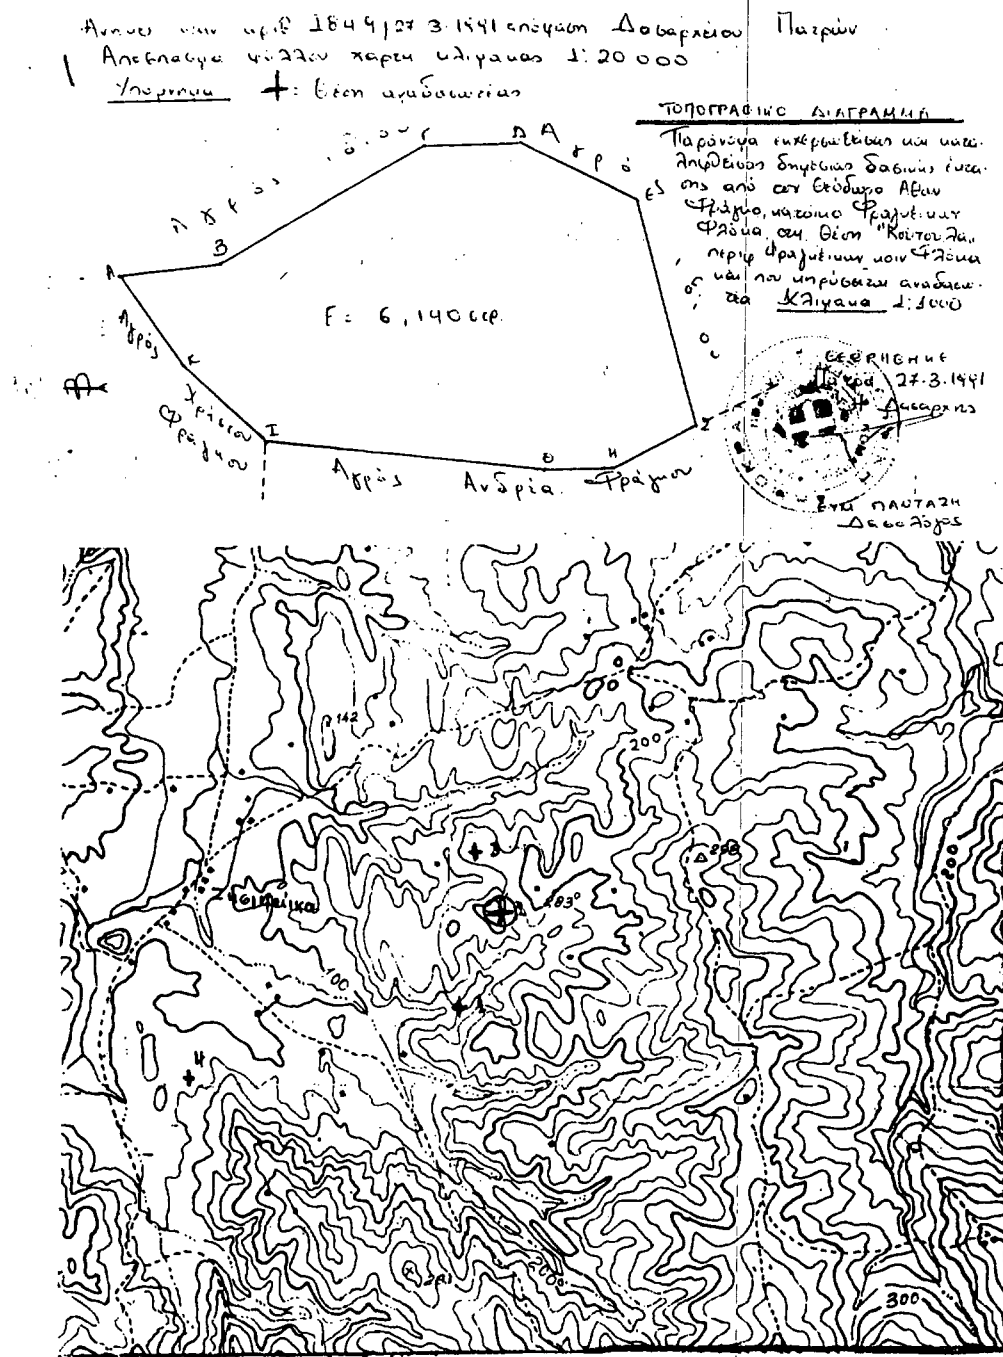 Ανηκει στην αριθ 1849/27.3.1991 απόφαση Δασαρχείου Πατρών
Απόσπασμα φύλλου χάρτη κλίμακας 1:20000
Υπόμνημα +: Θέση αναδασωτέας
ΤΟΠΟΓΡΑΦΙΚΟ ΔΙΑΓΡΑΜΜΑ
Παράνομα εκχερσωθείσας και κατα-
ληφθείσας δημόσιας δασικής έκτα-
σης από τον Θεόδωρο Αθαν
Φράγκο, κάτοικο Φραγκέικων
Φλόκα, στη θέση "Κούτουλα"
περιφ Φραγκέικων κοιν Φλόκα
και που κηρύσσεται αναδασω-
τέα Κλίμακα 1:1000
Αγρός
Γ Δ Αγρό
Ε
Β
Α
Ε = 6,140 στρ.
Αγρός
Κ
Χρήστου
Φράγκου
Ι
Ζ
Θ Η
Αγρός Ανδρέα Φράγκου
Β
ΘΕΩΡΗΘΗΚΕ
Πάτρα 27.3.1991
Η Δασάρχης
ΕΥΜ ΠΑΝΤΑΖΗ
Δασολόγος
142
200
3
298
283
100
1
4
281
200
300
300